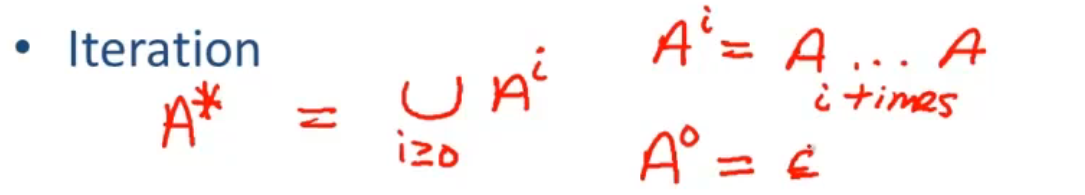 • Iteration
A* = ∪ Aⁱ
i≥0
Aⁱ = A ... A
i times
A⁰ = ε